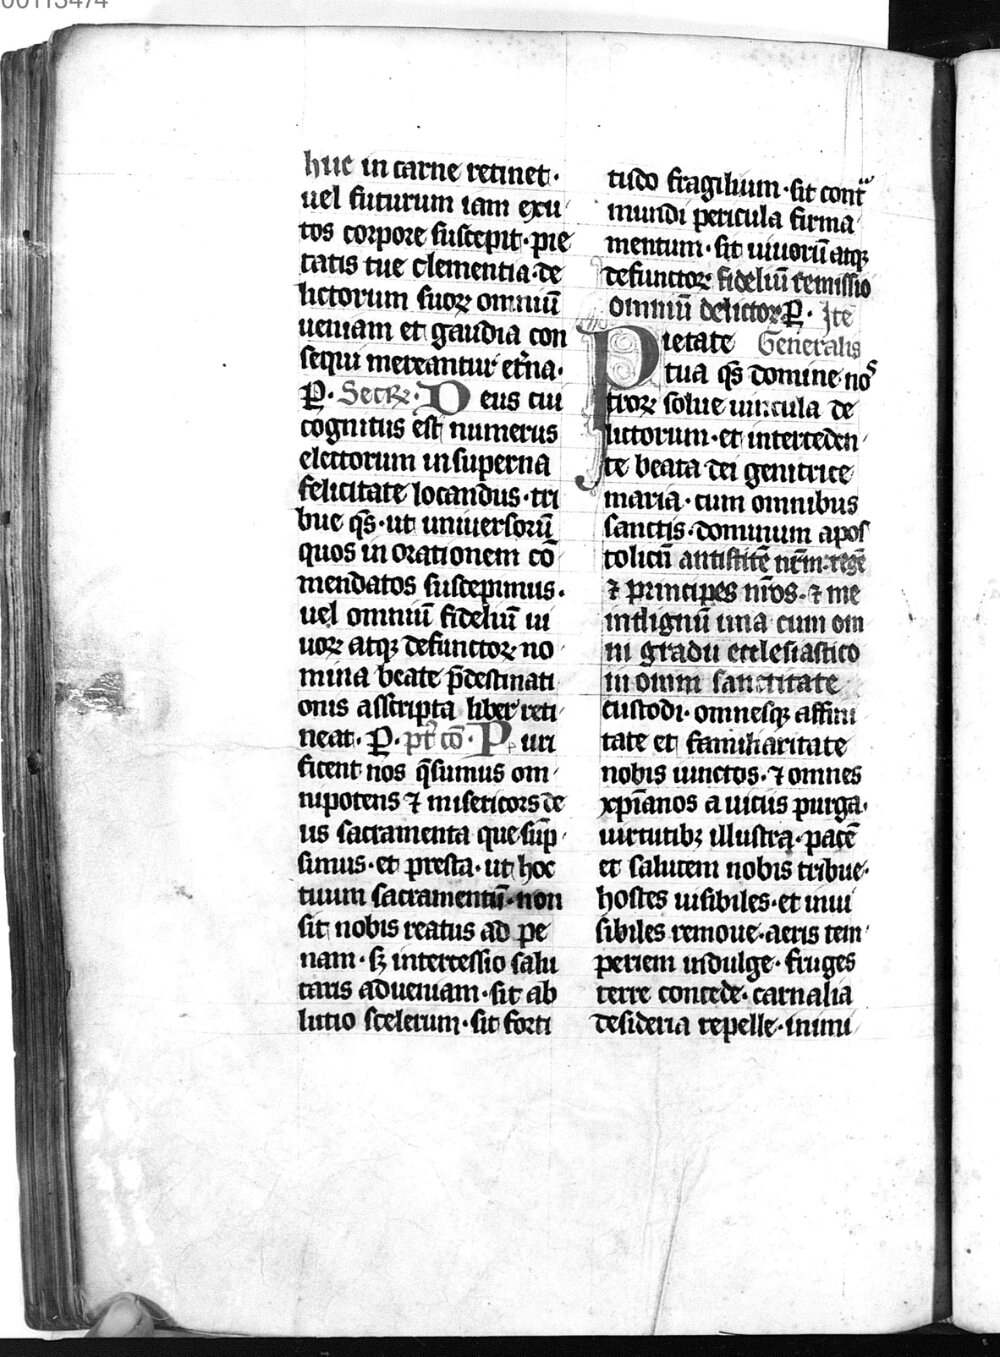 00113474
huc in carne retinet·
uel futurum iam exu
tos corpore suscepit· pie
tatis tue clementia· de
lictorum suoꝝ omniũ
ueniam et gaudia con
sequi mereantur et̃na·
ꝑ· Secꝝ· Deus cui
cognitus est numerus
electorum in superna
felicitate locandus· tri
bue q̃s· ut uniuersorũ
quos in orationem cõ
mendatos suscepimus·
uel omniũ fideliũ ui
uoꝝ atqꝫ defunctoꝝ no
mina beate p̃destinati
onis asscripta liber reti
neat· ꝑ· pt̃ cõ· Puri
ficent nos q̃sumus om
nipotens ⁊ misericors de
us sacramenta que sũp
simus· et presta· ut hoc
tuum sacramentũ· non
sit nobis reatus ad pe
nam· sꝫ intercessio salu
taris ad ueniam· sit ab
lutio scelerum· sit forti
tudo fragilium· sit cont̃
mundi pericula firma
mentum· sit uiuorũ atqꝫ
defunctoꝝ fideliũ remissio
omniũ delictoꝝ ꝑ· Itẽ
Pietate Generalis
tua q̃s domine nos
troꝝ solue uincula de
lictorum· et interceden
te beata dei genitrice
maria· cum omnibus
sanctis· dominum apos
tolicũ antistitẽ nr̃m· regẽ
⁊ principes nr̃os· ⁊ me
indignũ una cum om
ni gradu ecclesiastico
in omni sanctitate
custodi· omnesqꝫ affini
tate et familiaritate
nobis iunctos· ⁊ omnes
xp̃ianos a uiciis purga·
uirtutibꝫ illustra· pacẽ
et salutem nobis tribue·
hostes uisibiles· et inui
sibiles remoue· aeris tem
periem indulge· fruges
terre concede· carnalia
desideria repelle· inimi